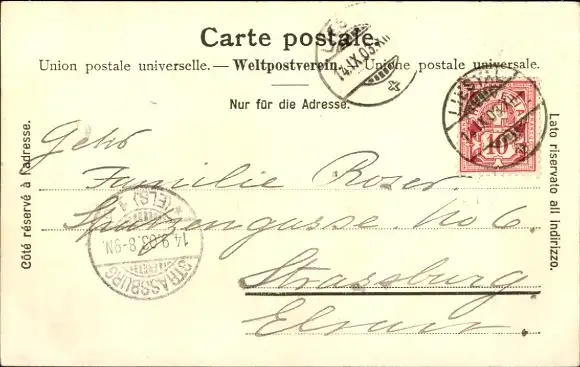 Carte postale.
Union postale universelle. — Weltpostverein. — Unione postale universale.
Nur für die Adresse.
Côté réservé à l'adresse.
Lato riservato all indirizzo.
14.IX.03.XI
LIESTAL
10
Familie Roser
Spatzengasse. No 6.
Strassburg
STRASSBURG
(ELS) 1
14.9.03.8-9N.